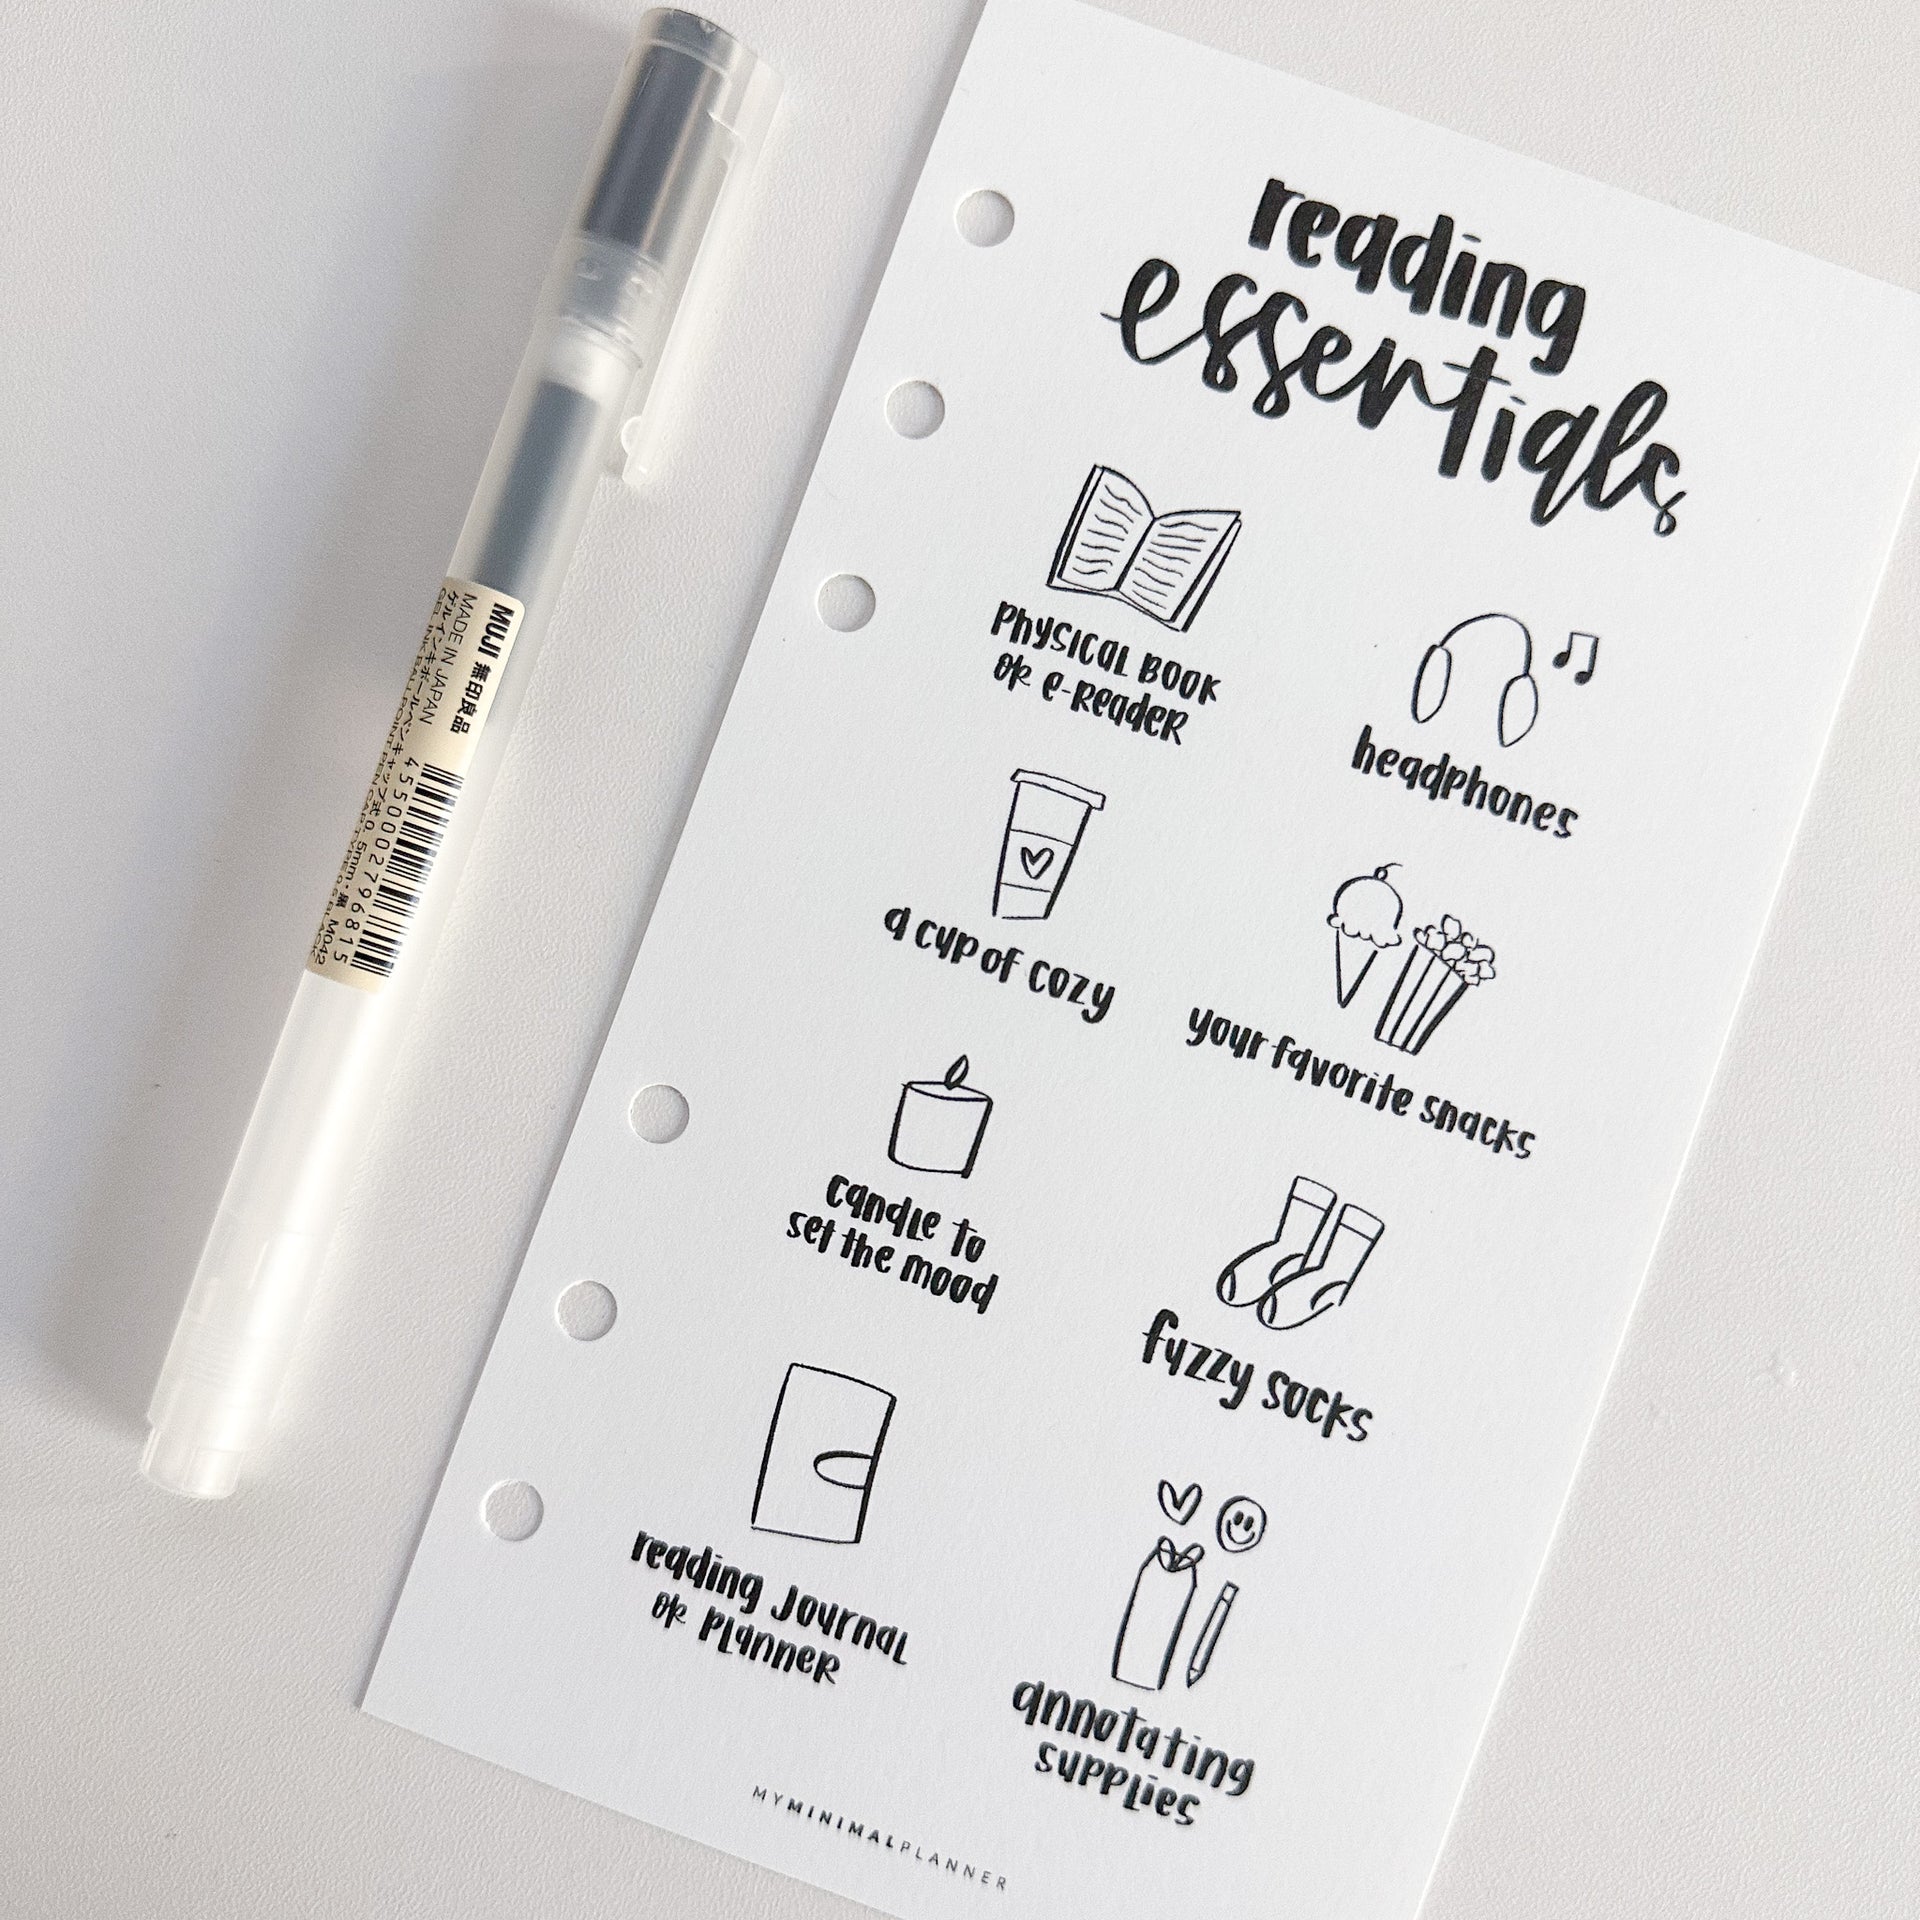 MUJI 無印良品
MADE IN JAPAN
ゲルインキボールペンキャップ式0.5mm・黒 M042
GEL INK BALL POINT PEN CAP TYPE 0.5 BLACK
4550002796815
reading
essentials
PHYSICAL BOOK
OR e-READER
headphones
a cup of cozy
your favorite snacks
candle to
set the mood
fuzzy socks
reading journal
or planner
annotating
supplies
MYMINIMALPLANNER